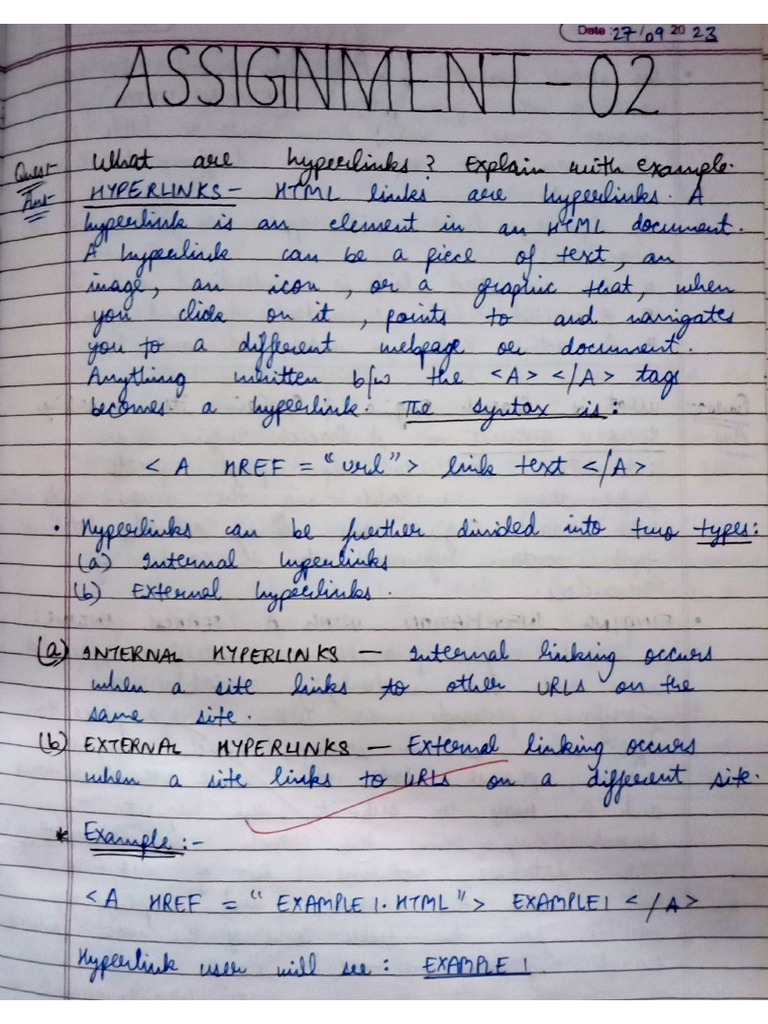 Date : 27/09 20 23
ASSIGNMENT-02
Quest What are hyperlinks? Explain with example.
Ans HYPERLINKS - HTML links are hyperlinks. A
hyperlink is an element in an HTML document.
A hyperlink can be a piece of text, an
image, an icon, or a graphic that, when
you click on it, points to and navigates
you to a different webpage or document.
Anything written b/w the <A> </A> tags
becomes a hyperlink. The syntax is:
<A HREF = "url"> link text </A>
• Hyperlinks can be further divided into two types:
(a) Internal hyperlinks
(b) External hyperlinks.
(a) INTERNAL HYPERLINKS — Internal linking occurs
when a site links to other URLs on the
same site.
(b) EXTERNAL HYPERLINKS — External linking occurs
when a site links to URLs on a different site.
* Example:-
<A HREF = "EXAMPLE 1. HTML"> EXAMPLE1 </A>
Hyperlink user will see: EXAMPLE 1